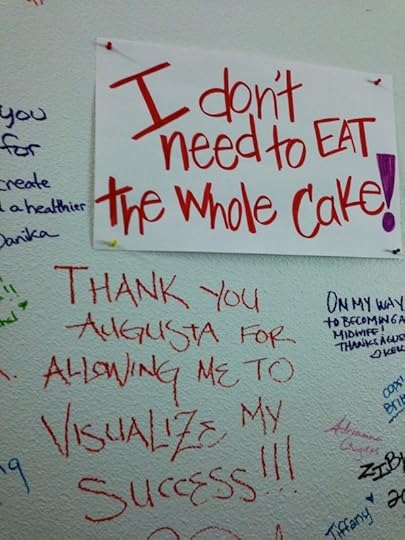 I don't
need to EAT
the Whole Cake!
you
for
create
a healthier
Danika
THANK YOU
AUGUSTA FOR
ALLOWING ME TO
VISUALIZE MY
SUCCESS!!!
ON MY WAY
TO BECOMING A
MIDWIFE!
THANKS
OOPS!
Adrianna
Tiffany